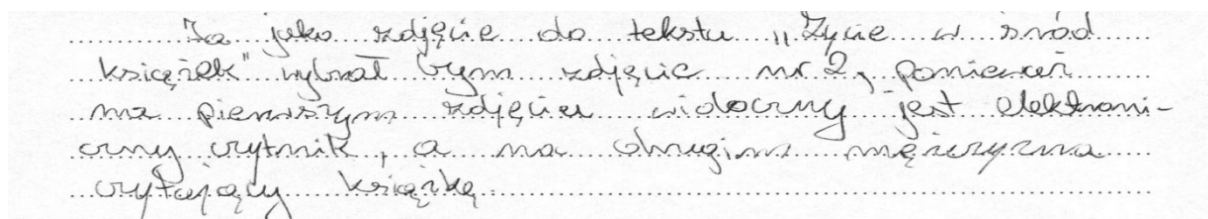 Ja jako zdjęcie do tekstu „Życie w śród
książek" wybrał bym zdjęcie nr 2, ponieważ
na pierwszym zdjęciu widoczny jest elektroni-
czny czytnik, a na drugim mężczyzna
czytający książkę